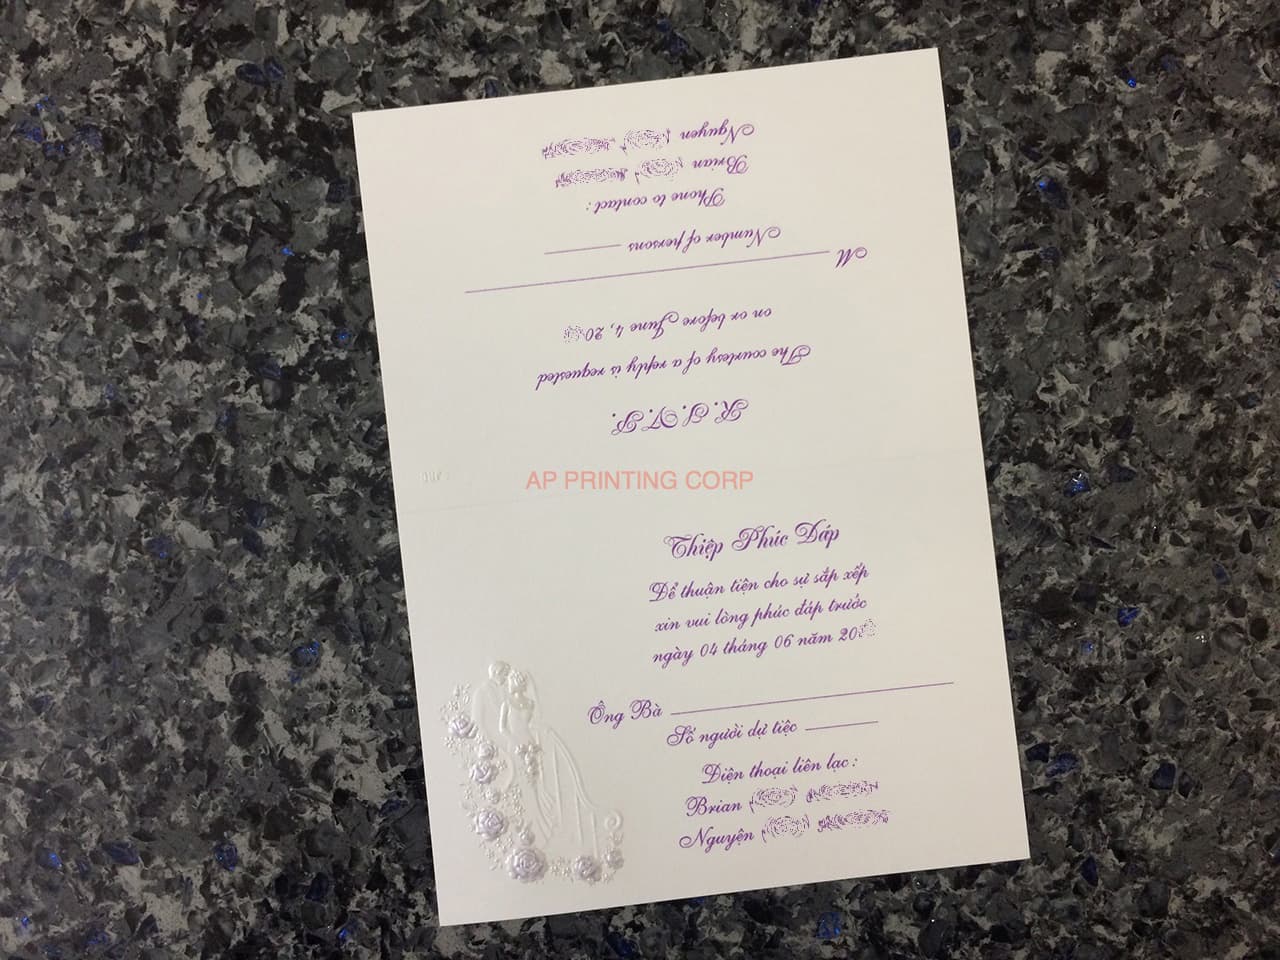 R.S.V.P.
The courtesy of a reply is requested
on or before June 4, 20
M
Number of persons
Phone to contact :
Brian
Nguyen
AP PRINTING CORP
Thiệp Phúc Đáp
Để thuận tiện cho sự sắp xếp
xin vui lòng phúc đáp trước
ngày 04 tháng 06 năm 20
Ông Bà
Số người dự tiệc
Điện thoại liên lạc :
Brian
Nguyện